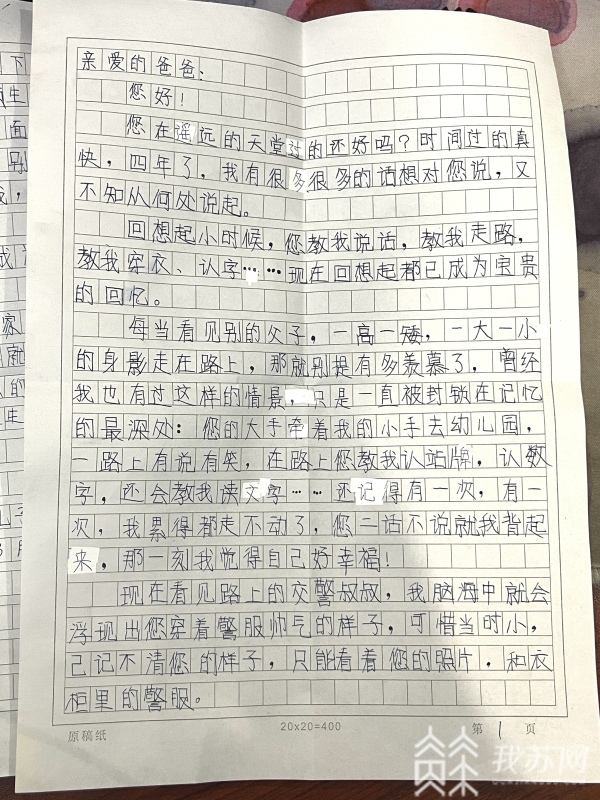 亲爱的爸爸：
您好！
您在遥远的天堂过的还好吗？时间过的真
快，四年了，我有很多很多的话想对您说，又
不知从何处说起。
回想起小时候，您教我说话，教我走路，
教我穿衣、认字……现在回想起都已成为宝贵
的回忆。
每当看见别的父子，一高一矮，一大一小
的身影走在路上，那就别提有多羡慕了，曾经
我也有过这样的情景，只是一直被封锁在记忆
的最深处：您的大手牵着我的小手去幼儿园，
一路上有说有笑，在路上您教我认站牌，认数
字，还会教我读文字……还记得有一次，有一
次，我累得都走不动了，您二话不说就我背起
来，那一刻我觉得自己好幸福！
现在看见路上的交警叔叔，我脑海中就会
浮现出您穿着警服帅气的样子，可惜当时小，
己记不清您的样子，只能看着您的照片．和衣
柜里的警服。
原稿纸 20x20=400 第1页
我苏网
下
生
面
别
家
就
的
生